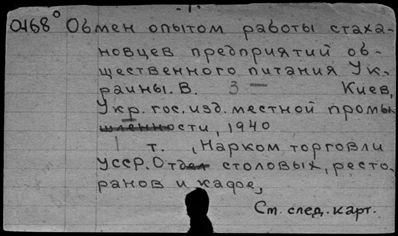 0468° Обмен опытом работы стаха-
новцев предприятий об-
щественного питания Ук-
раины. В. 3 — Киев,
Укр. гос. изд. местной промы
шленности, 1940
1 т. , Нарком торговли
УССР. Отдел столовых, ресто-
ранов и кафе,
См. след. карт.